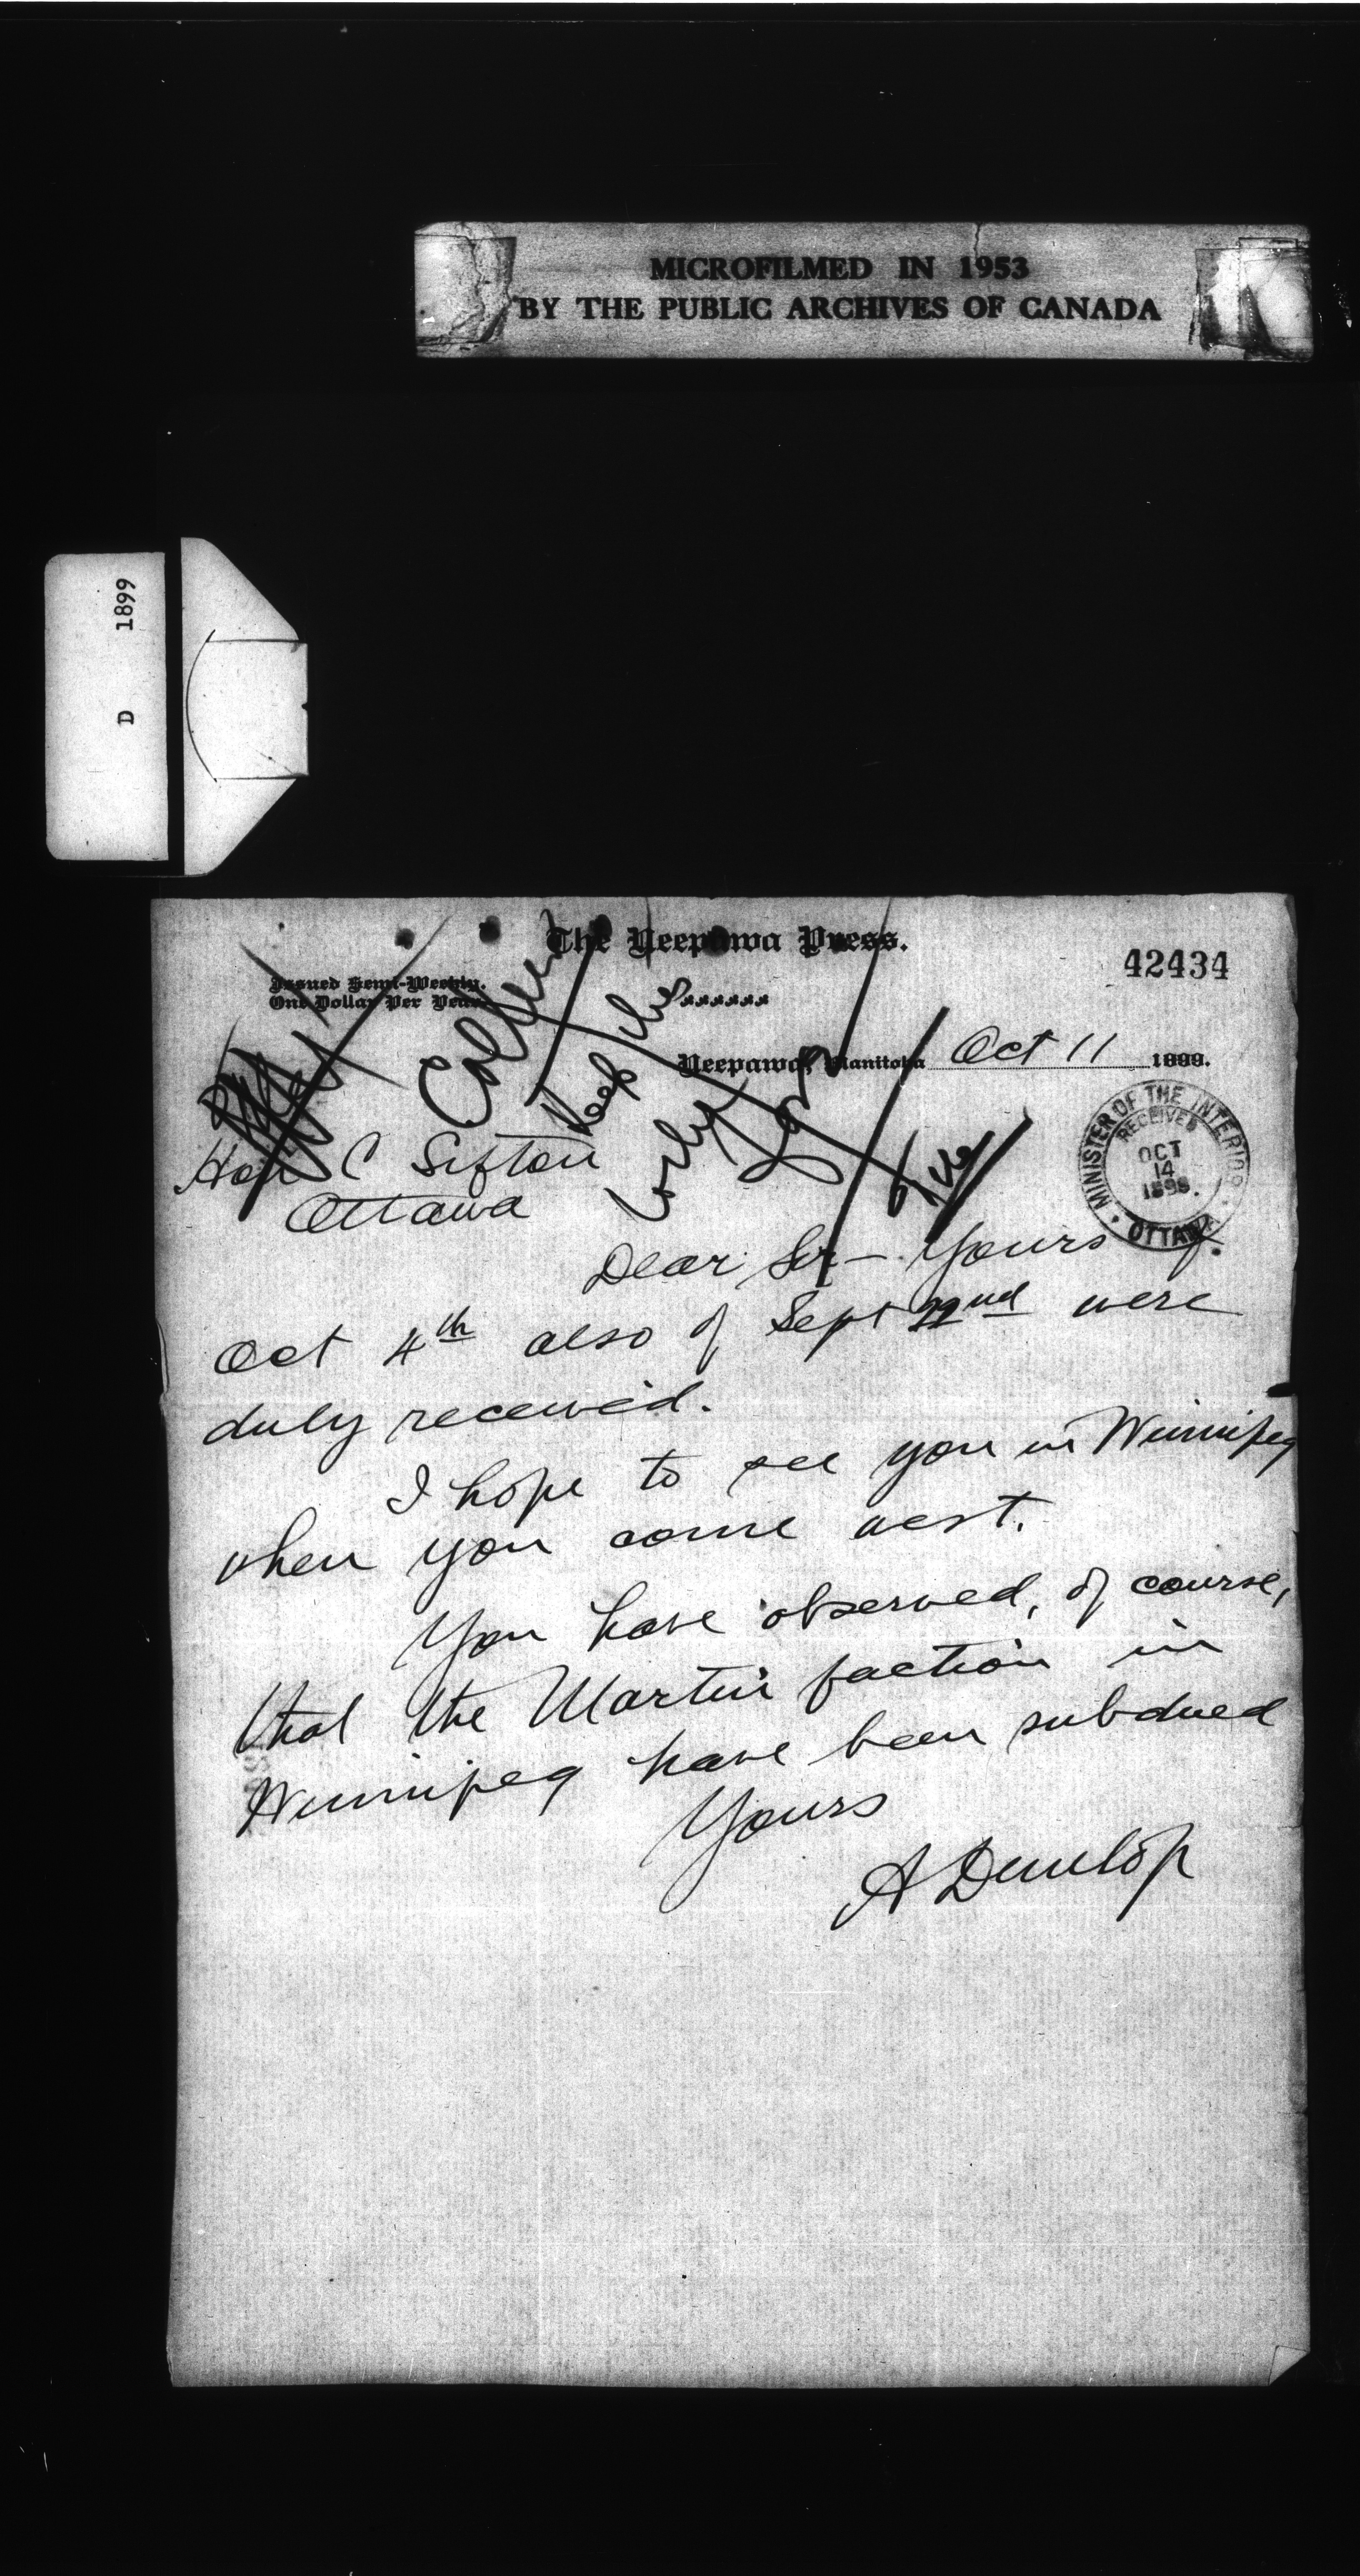 MICROFILMED IN 1953
BY THE PUBLIC ARCHIVES OF CANADA
D 1899
The Neepawa Press.
42434
Issued Semi-Weekly.
One Dollar Per Year.
Neepawa, Manitoba Oct 11 1899.
MINISTER OF THE INTERIOR
RECEIVED
OCT
14
OTTAWA
Keep this
file
Hon C Sifton
Ottawa
Dear Sir – Yours of
Oct 4th also of Sept 22nd were
duly received.
I hope to see you in Winnipeg
when you come west.
You have observed, of course,
that the Martin faction in
Winnipeg have been subdued
Yours
A Dunlop